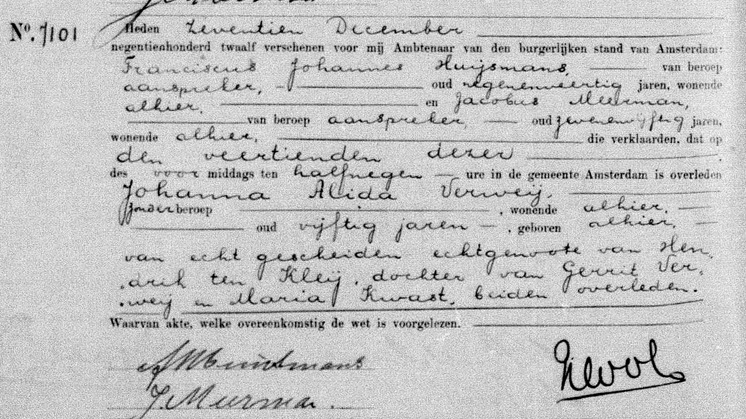 No. 7101 Heden zeventien December
negentienhonderd twaalf verschenen voor mij Ambtenaar van den burgerlijken stand van Amsterdam:
Franciscus Johannes Huijsmans, van beroep
aanspreker, oud negenenveertig jaren, wonende
alhier, en Jacobus Meerman,
van beroep aanspreker, oud zevenenvijftig jaren,
wonende alhier, die verklaarden, dat op
den veertienden dezer
des voor middags ten halfnegen ure in de gemeente Amsterdam is overleden
Johanna Alida Verweij,
zonder beroep, wonende alhier,
oud vijftig jaren, geboren alhier,
van echt gescheiden echtgenoote van Hen.
drik ten Kleij, dochter van Gerrit Ver.
weij en Maria Kwast, beiden overleden.
Waarvan akte, welke overeenkomstig de wet is voorgelezen.
J. Meerman.